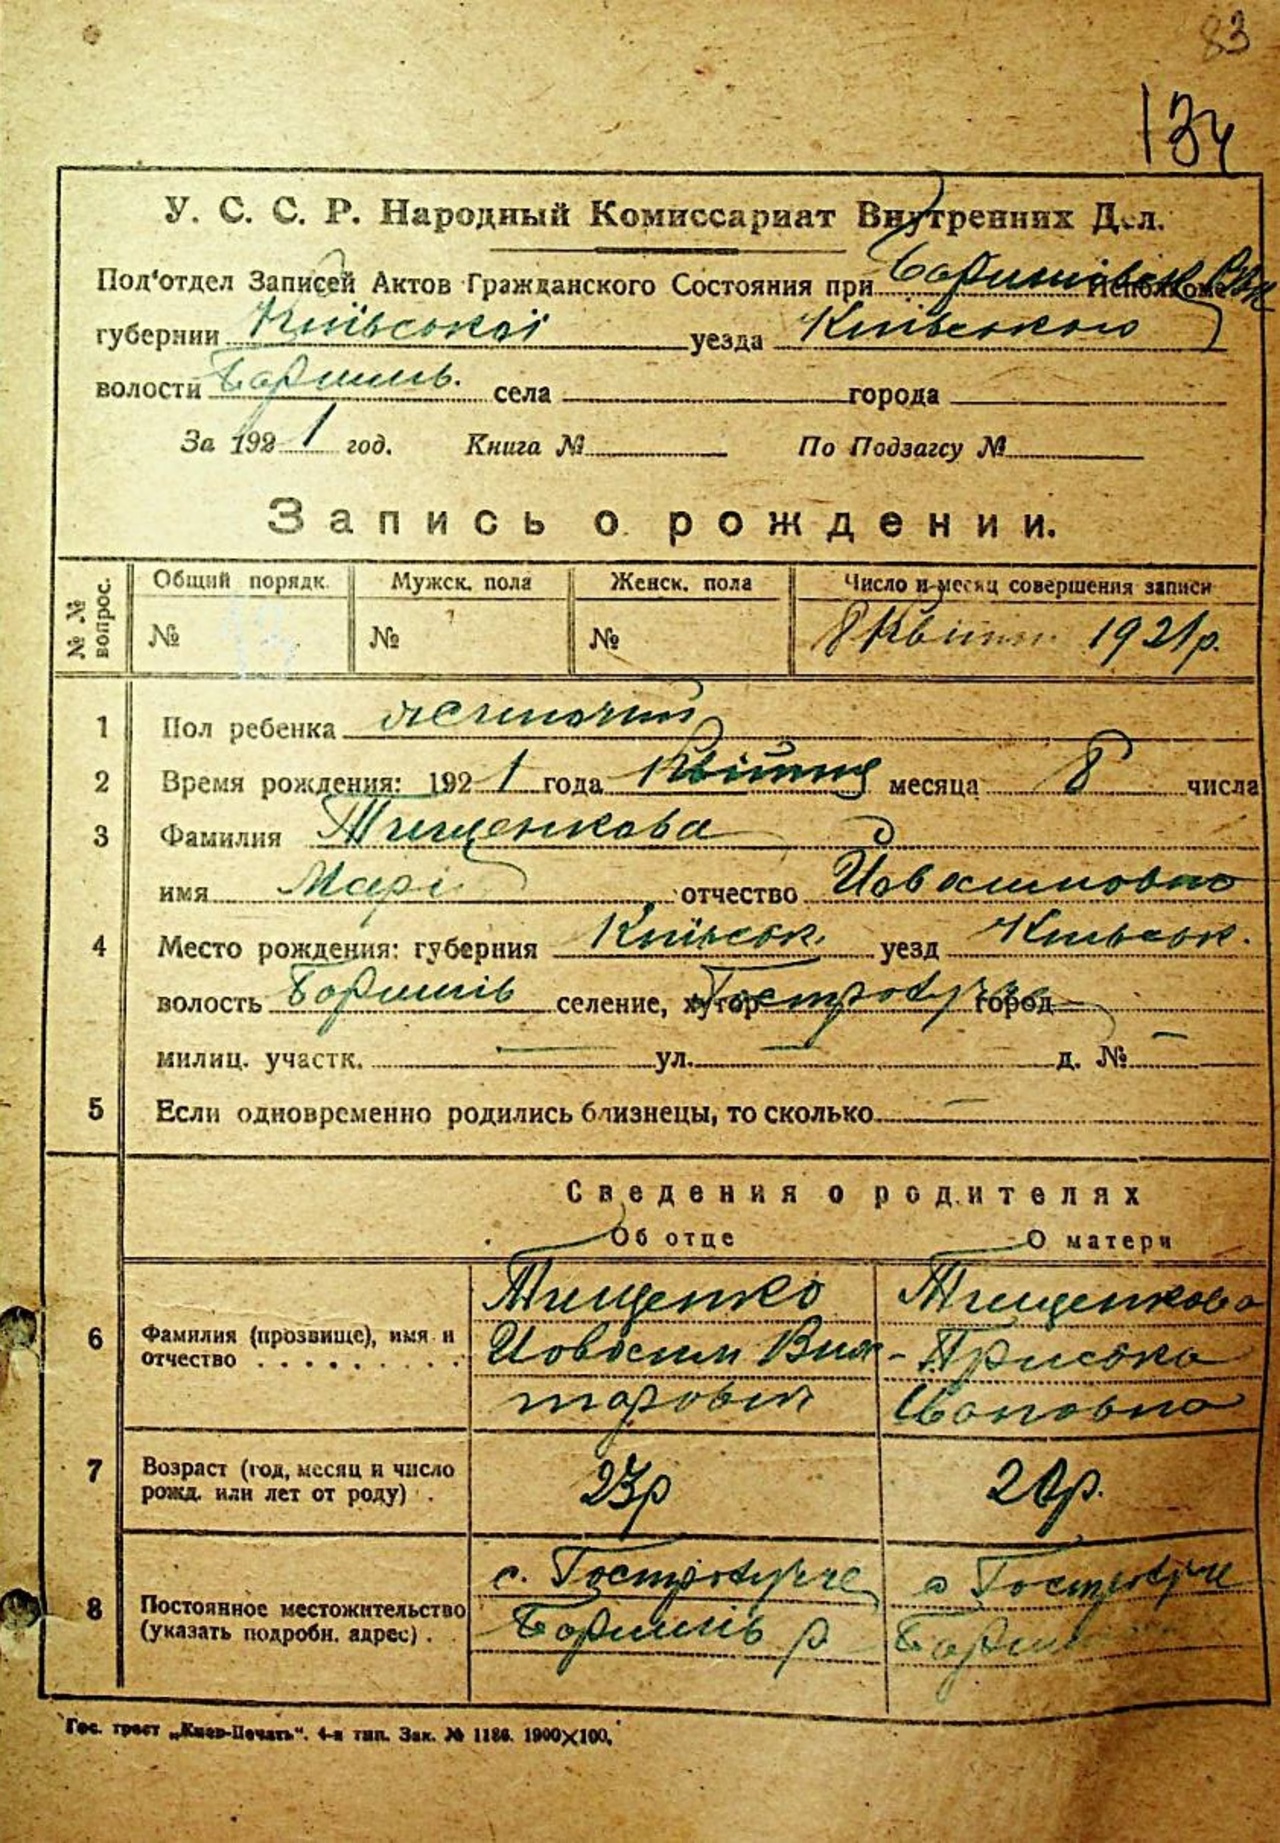 83
134
У. С. С. Р. Народный Комиссариат Внутренних Дел.
Под‘отдел Записей Актов Гражданского Состояния при Исполкоме
губернии Київської уезда Київського
волости Бориспіль. села города
За 1921 год. Книга № По Подзагсу №
Запись о рождении.
№ № вопрос. Общий порядк. Мужск. пола Женск. пола Число и месяц совершения записи
№ № № 8 Квітн. 1921р.
1 Пол ребенка жіночий
2 Время рождения: 1921 года Квітня месяца 8 числа
3 Фамилия Тищенкова
имя Марі отчество
4 Место рождения: губерния Київськ. уезд Київськ.
волость селение, хутор город
милиц. участк. — ул. — д. № —
5 Если одновременно родились близнецы, то сколько —
Сведения о родителях
Об отце О матери
6 Фамилия (прозвище), имя и отчество Тищенко Тищенкова
Пріська
Ивановна
7 Возраст (год, месяц и число рожд. или лет от роду) 23р 20р.
8 Постоянное местожительство (указать подробн. адрес) с.
Гос. трест „Киев-Печать“. 4-я тип. Зак. № 1186. 1900×100.